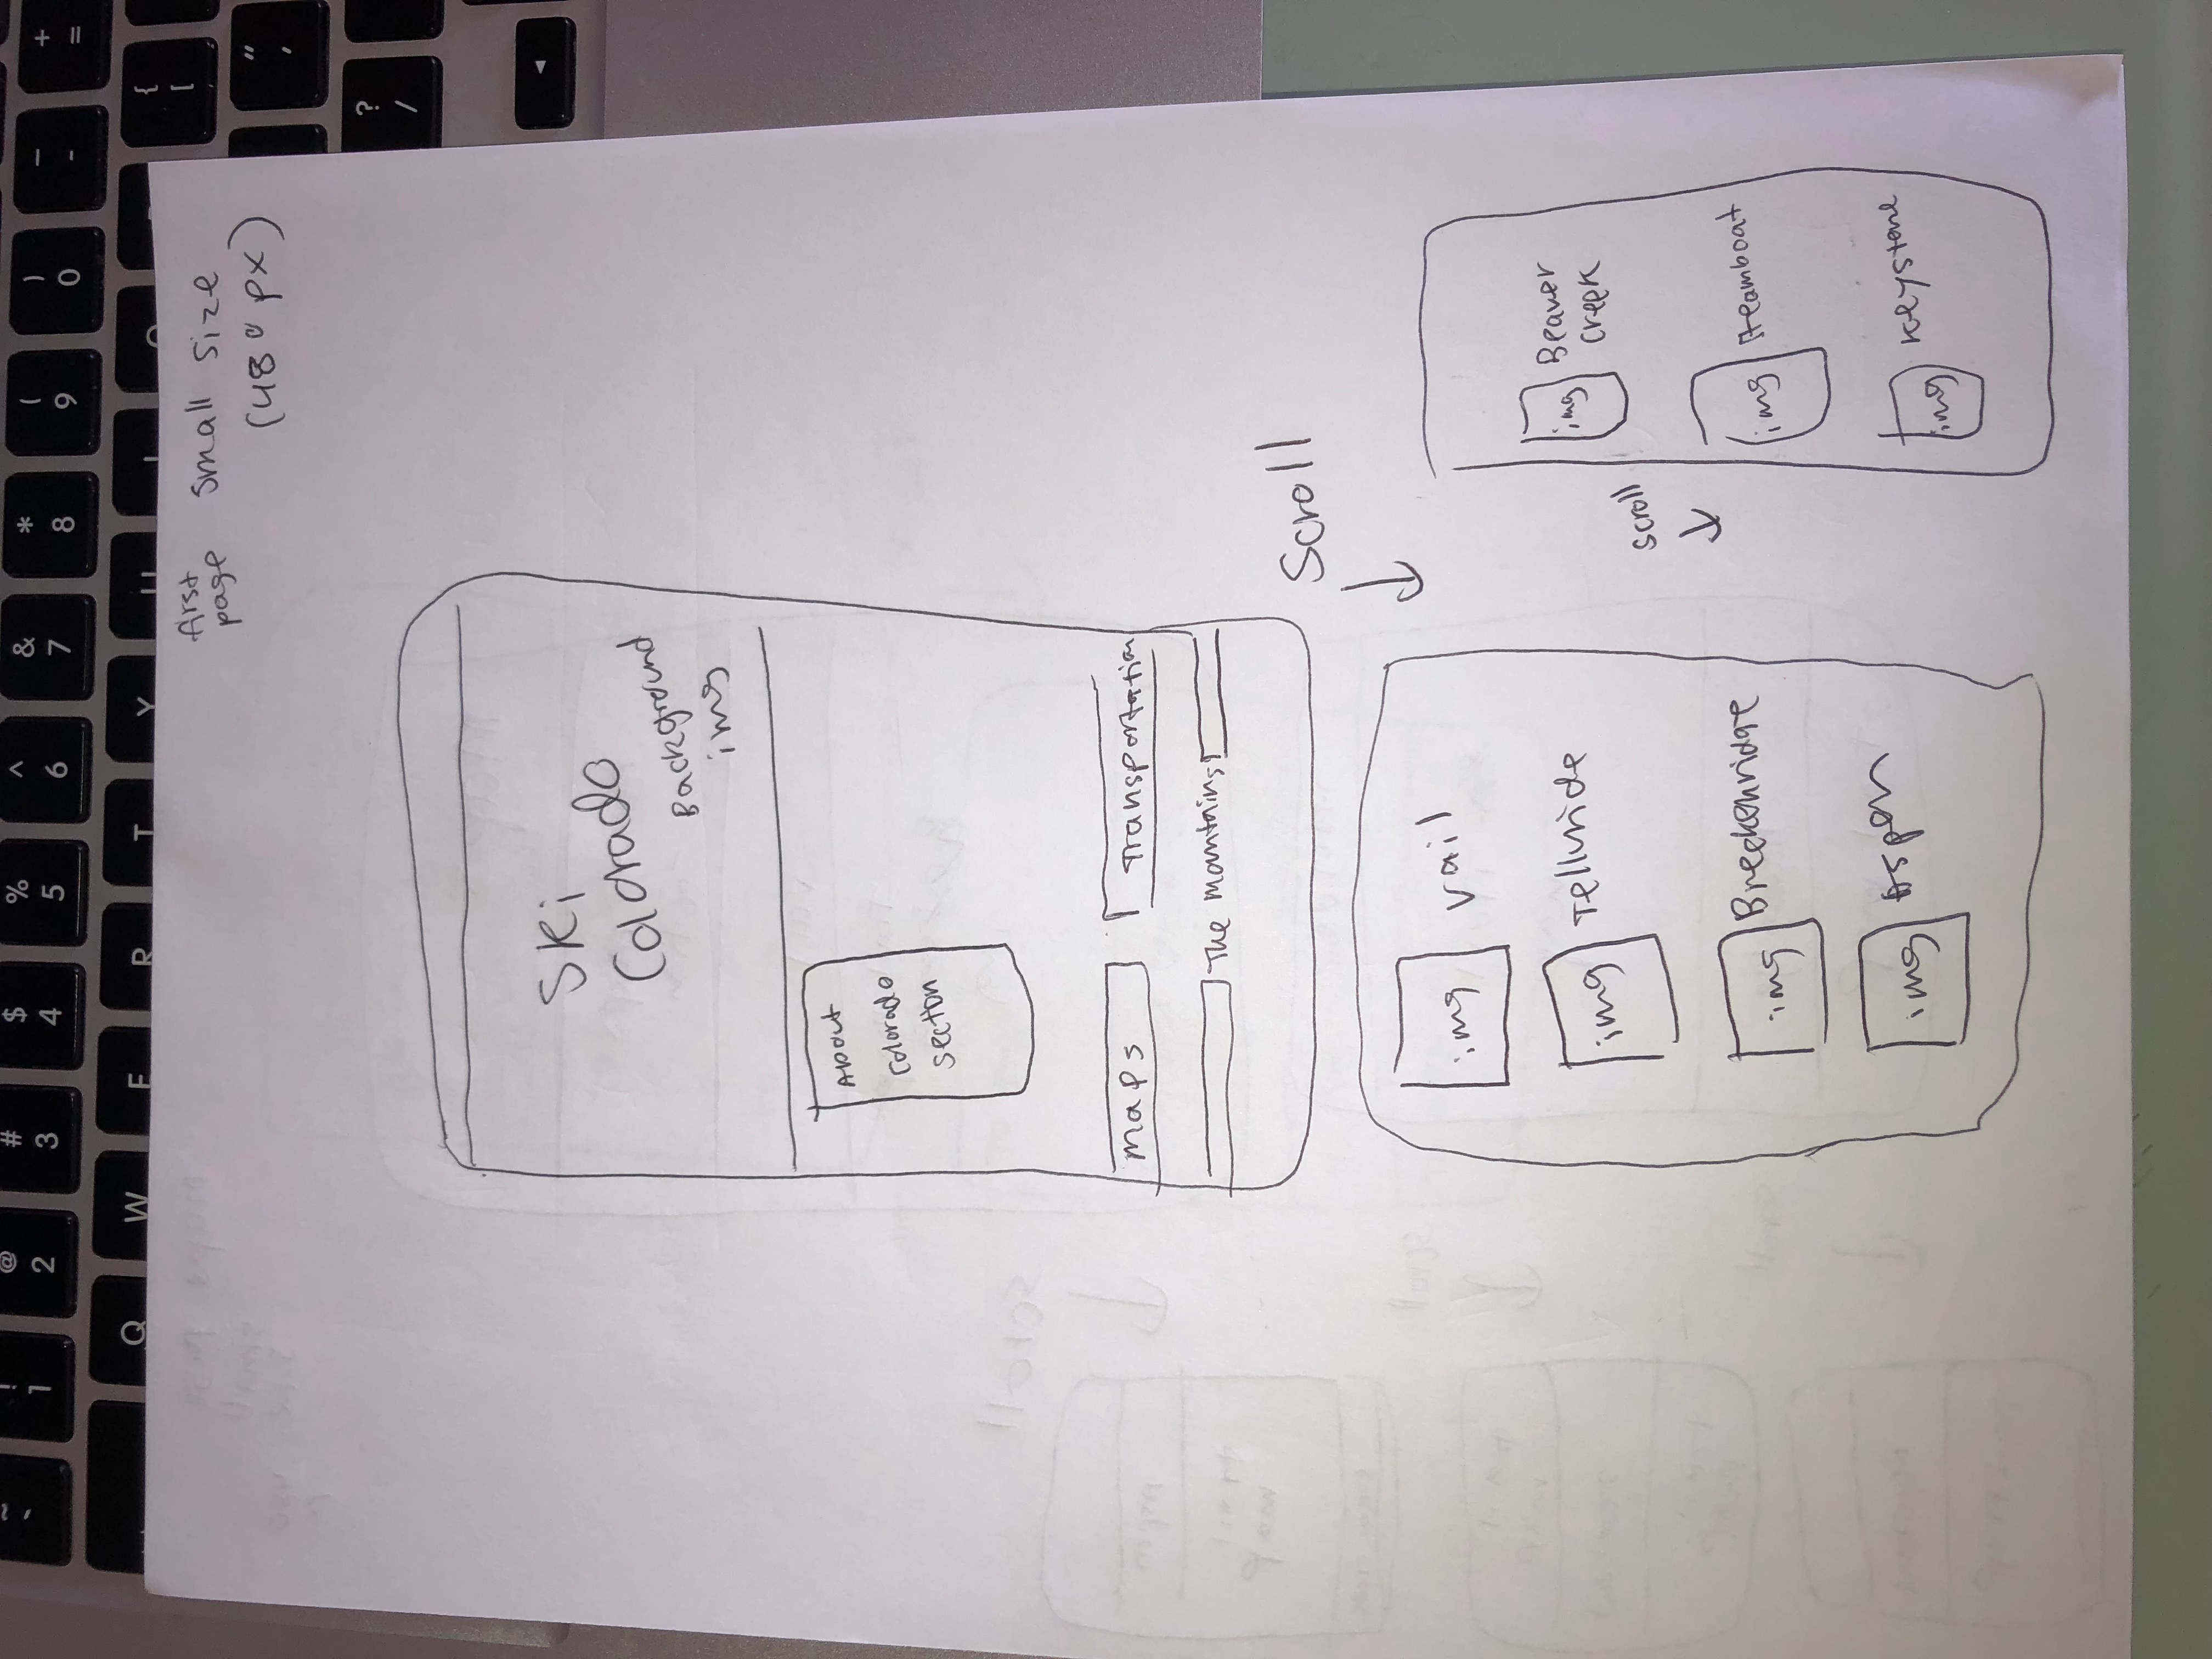 ~
`
!
1
@
2
#
3
$
4
%
5
^
6
&
7
*
8
(
9
)
0
_
-
+
=
Q
W
E
R
T
Y
U
I
O
P
{
[
"
'
?
/
◄
first
page
small size
(480 px)
Ski
Colorado
Background
img
About
Colorado
section
maps
Transportation
The mountains
Scroll
↓
img
vail
img
Telluride
img
Breckenridge
img
Aspen
scroll
↓
img
Beaver
Creek
img
Steamboat
img
Keystone